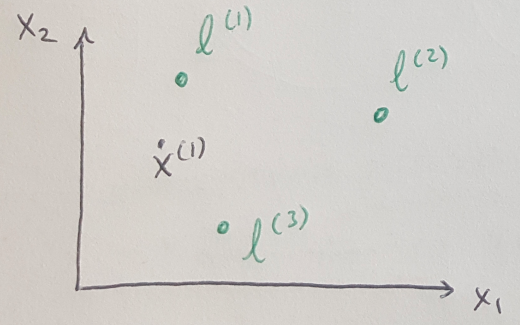 x₂
l⁽¹⁾
l⁽²⁾
x⁽¹⁾
l⁽³⁾
x₁